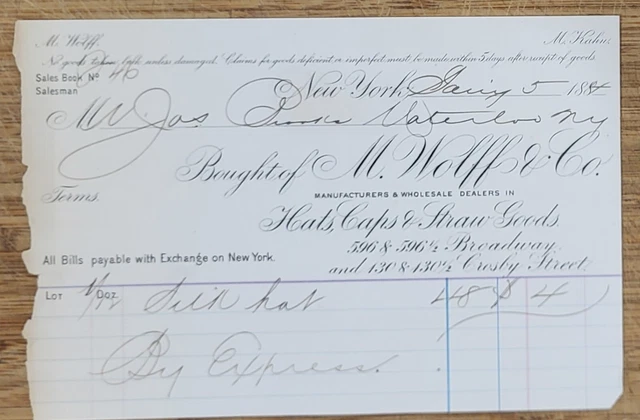 M. Wolff. M. Kahn.
No goods taken back unless damaged. Claims for goods deficient or imperfect must be made within 5 days after receipt of goods.
Sales Book No 46
Salesman
New York, 5 1884
Mr Jas Brooks Waterloo NY
Bought of M. Wolff & Co.
MANUFACTURERS & WHOLESALE DEALERS IN
Hats, Caps & Straw Goods.
596 & 596½ Broadway
and 130 & 130½ Crosby Street.
Terms.
All Bills payable with Exchange on New York.
LOT 1/12 Doz. Silk hat 48 $ 4
By Express.